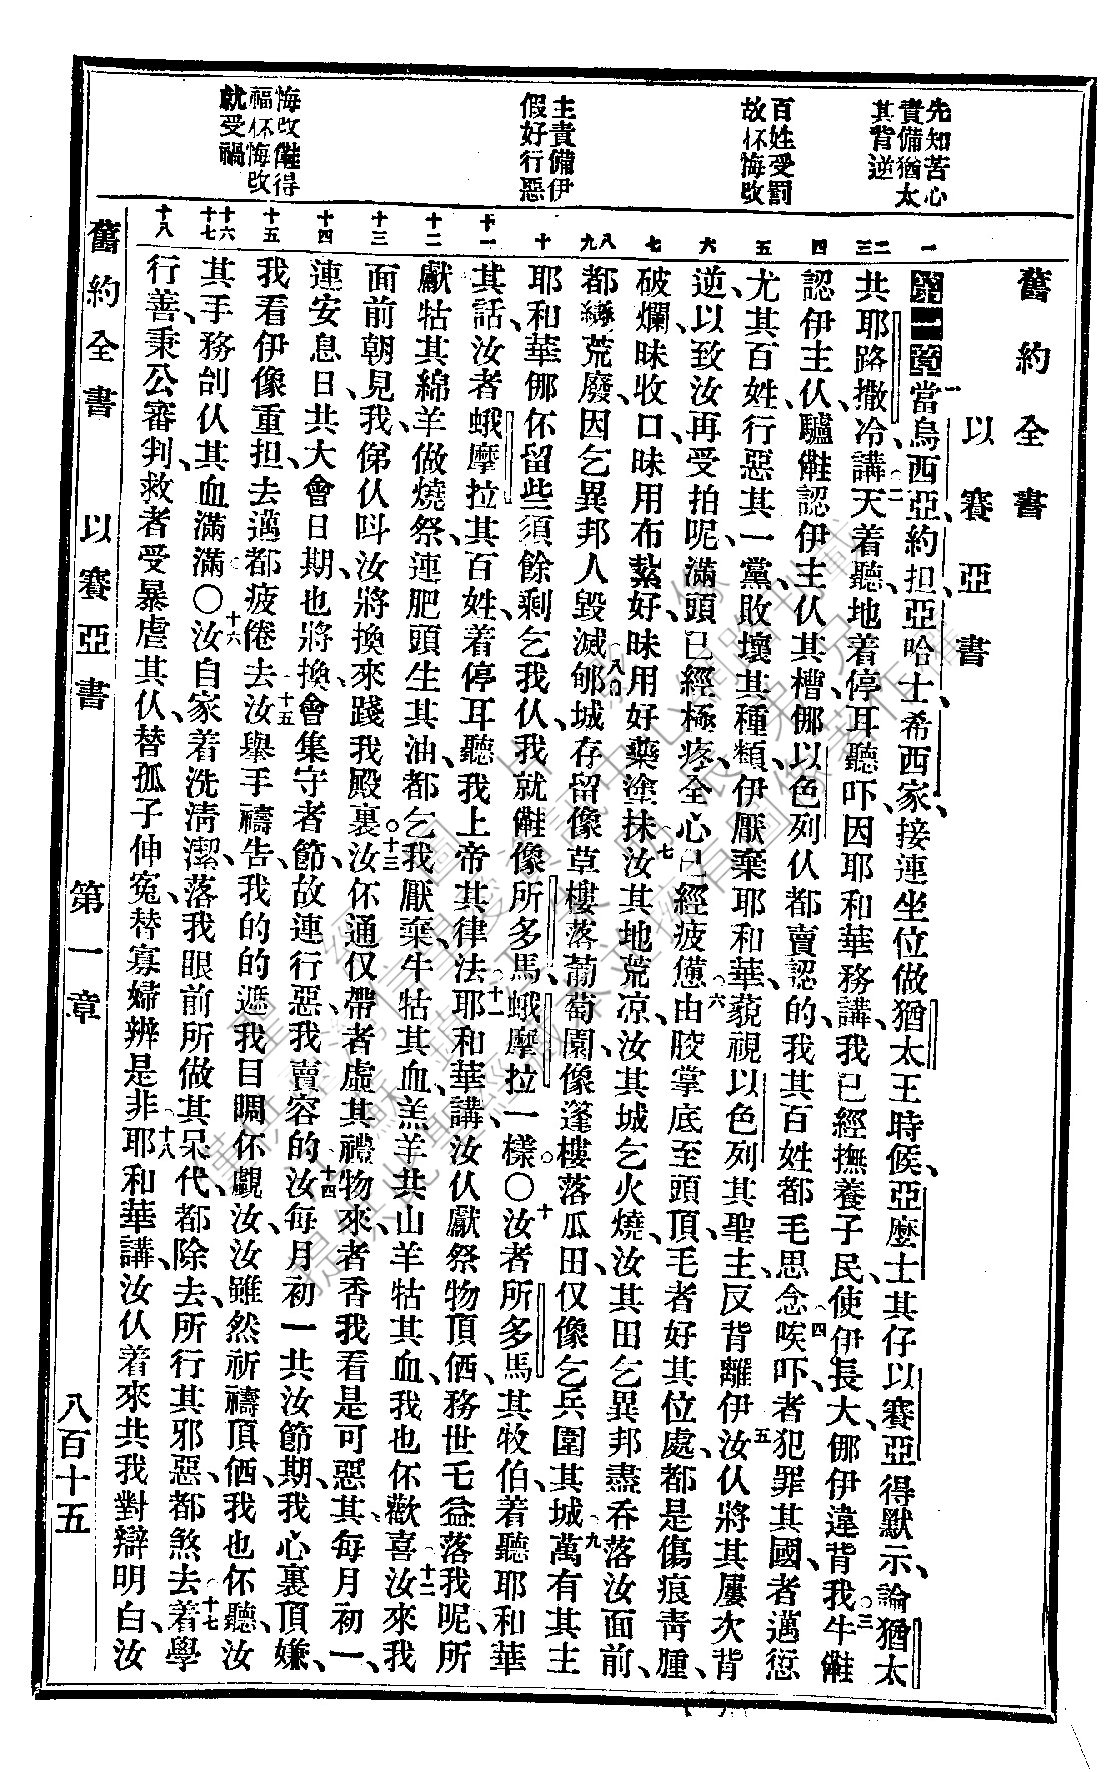 先知苦心
責備猶太
其背逆
百姓受罰
故怀悔改
主責備伊
假好行惡
悔改得
福怀悔改
就受禍
舊約全書
以賽亞書
一 第一章當烏西亞、約担亞哈士希西家、接連坐位做猶太王時候、亞麼士其仔以賽亞得默示、論猶太
二 三 共耶路撒冷、講、二天着聽、地着停耳聽吓、因耶和華務講、我已經撫養子民、使伊長大、㑚伊違背我。三牛
四 認伊主仈、驢認伊主仈其槽、㑚以色列仈都賣認的、我其百姓都毛思念、四唉吓、者犯罪其國、者邁愆
五 尤其百姓、行惡其一黨、敗壞其種類、伊厭棄耶和華、藐視以色列其聖主、反背離伊、五汝仈將其屢次背
六 逆、以致汝再受拍呢、滿頭已經極疼、全心已經疲憊。六由骹掌底至頭頂、毛者好其位處、都是傷痕靑腫、
七 破爛、昧收口、昧用布紮好、昧用好藥塗抹、七汝其地荒凉、汝其城乞火燒、汝其田乞異邦盡吞落汝面前、
八 九 都荒廢、因乞異邦人毀滅、八郇城存留像草樓落葡萄園、像篷樓落瓜田、仅像乞兵圍其城、九萬有其主
十 耶和華、㑚怀留些須餘剩乞我仈、我就像所多馬、蛾摩拉一樣。〇十汝者所多馬其牧伯、着聽耶和華
十一 其話、汝者蛾摩拉其百姓、着停耳聽我上帝其律法、十一耶和華講、汝仈獻祭物頂務世乇益落我呢、所
十二 獻牯其綿羊做燒祭、連肥頭生其油、都乞我厭棄、牛牯其血、羔羊共山羊牯其血、我也怀歡喜、十二汝來我
十三 面前朝見我、俤仈呌汝將換來踐我殿裏。十三汝怀通仅帶者虛其禮物來、者香我看是可惡其、每月初一、
十四 連安息日、共大會日期、也將換、會集守者節、故連行惡、我賣容的、十四汝每月初一共汝節期、我心裏頂嫌、
十五 我看伊像重担、去邁都疲倦去、十五汝舉手禱告、我的的遮我目睭怀覰汝、汝雖然祈禱頂我也怀聽、汝
十六 十七 其手務刣仈其血滿滿。〇十六汝自家着洗清潔、落我眼前所做其呆代、都除去、所行其邪惡、都煞去、十七着學
十八 行善、秉公審判、救者受暴虐其仈、替孤子伸寃、替寡婦辨是非、十八耶和華講、汝仈着來共我對辯明白、汝
舊約全書 以賽亞書 第一章 八百十五